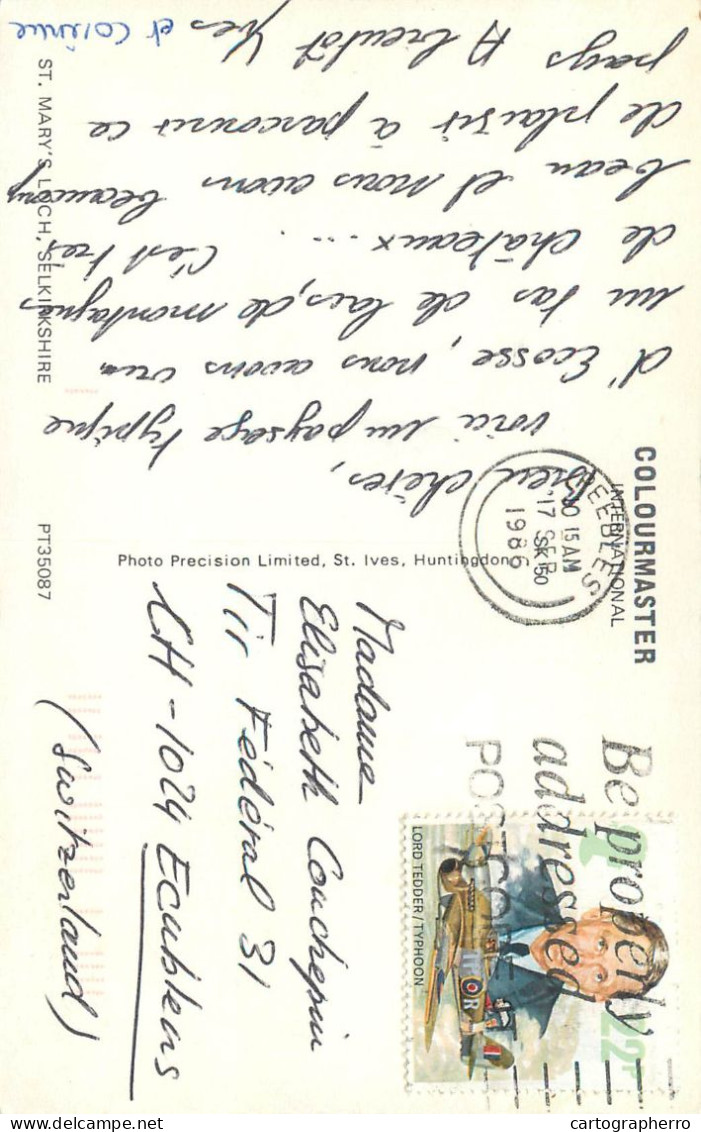 COLOURMASTER
INTERNATIONAL
Be properly
addressed
POSTCODE
22P
LORD TEDDER/TYPHOON
PEEBLES
10 15 AM
17 SEP
1986
SK 50
Bien chères,
voici un paysage typique
d'Ecosse, nous avons vu
un tas de lacs, de montagnes
de châteaux ... C'est très
beau et nous avons beaucoup
de plaisir à parcourir ce
pays A bientôt Yves
et
Madame
Elisabeth Couchepin
Tir Fédéral 31
CH-1024 Ecublens
(Switzerland)
Photo Precision Limited, St. Ives, Huntingdon
ST. MARY'S LOCH, SELKIRKSHIRE
PT35087
cartographerro